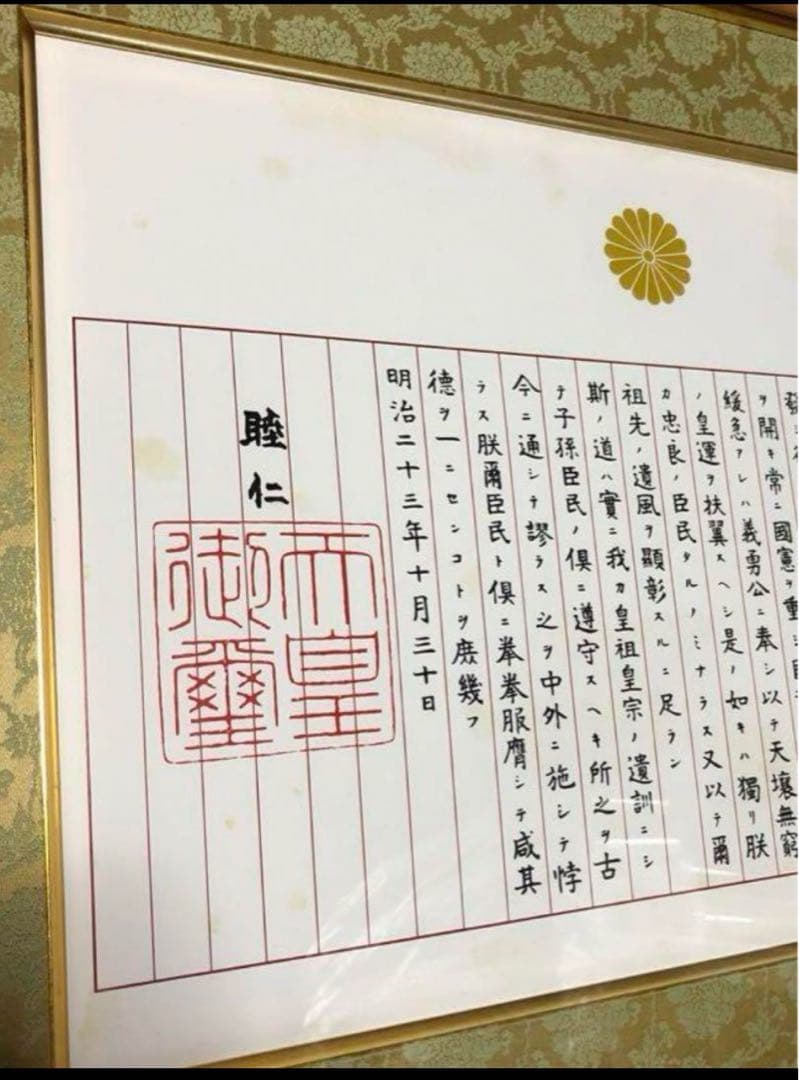 ヲ開キ常ニ國憲ヲ重シ
緩急アレハ義勇公ニ奉シ以テ天壤無窮
ノ皇運ヲ扶翼スヘシ是ノ如キハ獨リ朕
カ忠良ノ臣民タルノミナラス又以テ爾
祖先ノ遺風ヲ顯彰スルニ足ラン
斯ノ道ハ實ニ我カ皇祖皇宗ノ遺訓ニシ
テ子孫臣民ノ倶ニ遵守スヘキ所之ヲ古
今ニ通シテ謬ラス之ヲ中外ニ施シテ悖
ラス朕爾臣民ト倶ニ拳拳服膺シテ咸其
德ヲ一ニセンコトヲ庶幾フ
明治二十三年十月三十日
睦仁
天皇
御璽